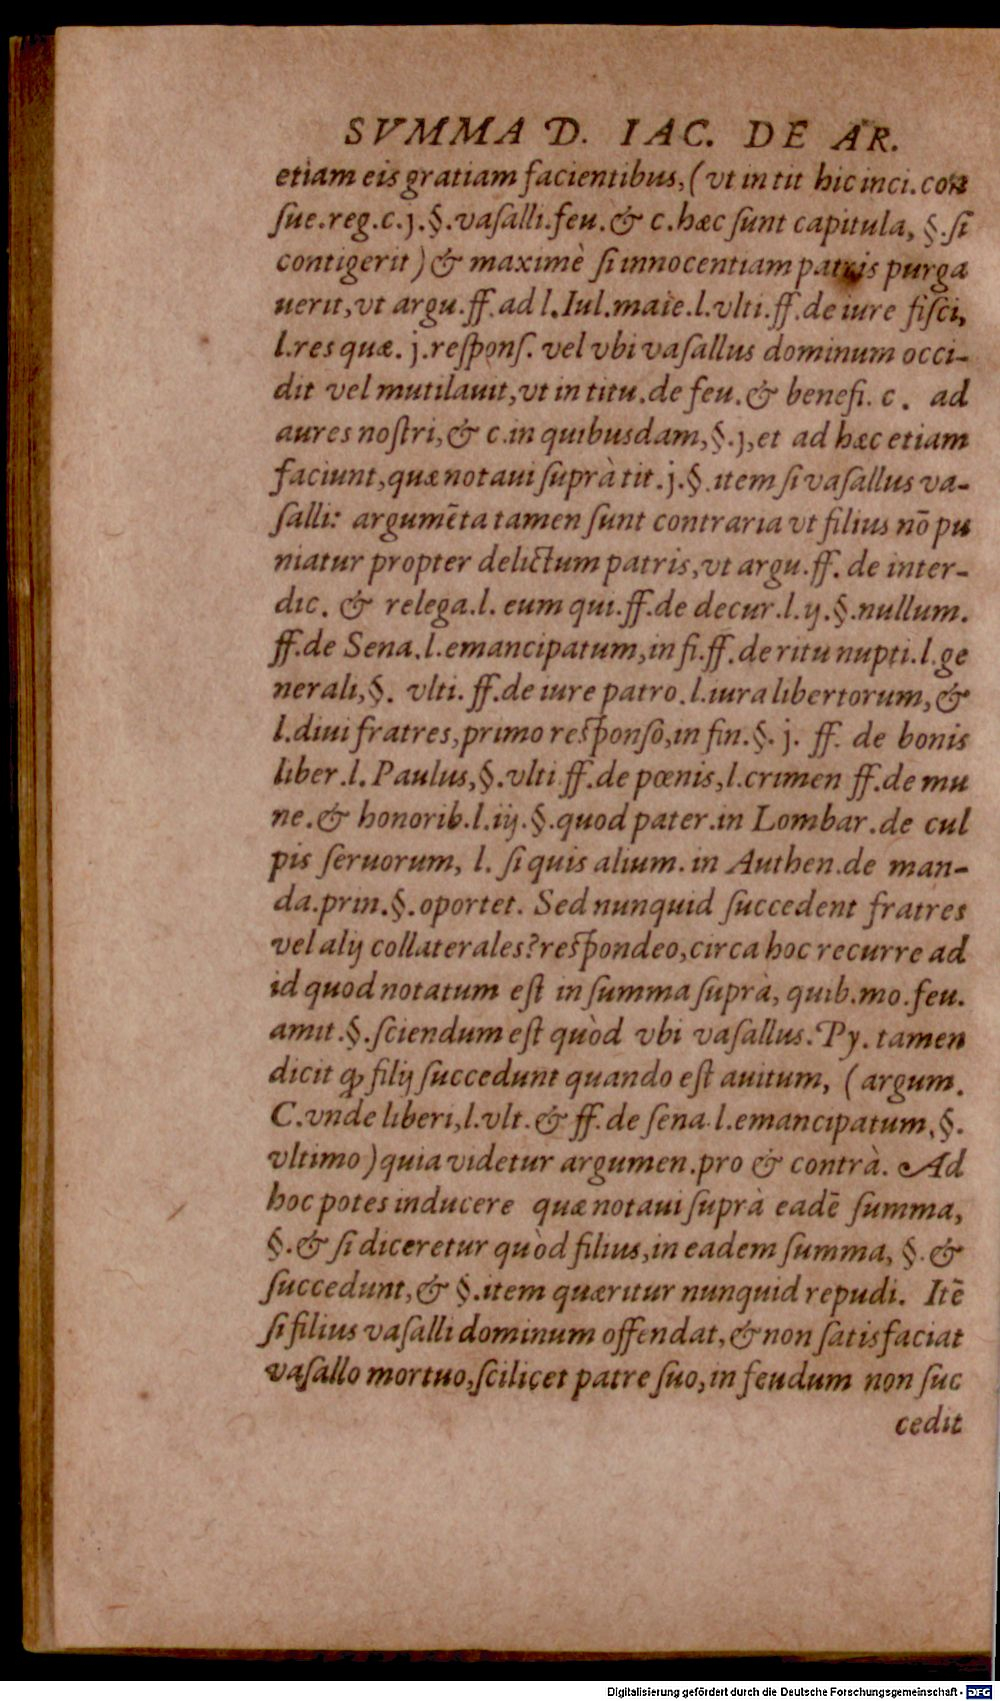 SVMMA D. IAC. DE AR.
etiam eis gratiam facientibus, (vt in tit hic inci. con
ſue. reg. c. j. §. vaſalli. feu. & c. hæc ſunt capitula, §. ſi
contigerit) & maximè ſi innocentiam patris purga
uerit, vt argu. ff. ad l. Iul. maie. l. vlti. ff. de iure fiſci,
l. res quæ. j. reſponſ. vel vbi vaſallus dominum occi-
dit vel mutilauit, vt in titu. de feu. & benefi. c. ad
aures noſtri, & c. in quibusdam, §. j, et ad hæc etiam
faciunt, quæ notaui ſuprà tit. j. §. item ſi vaſallus va-
ſalli: argumēta tamen ſunt contraria vt filius nō pu
niatur propter delictum patris, vt argu. ff. de inter-
dic. & relega. l. eum qui. ff. de decur. l. ij. §. nullum.
ff. de Sena. l. emancipatum, in fi. ff. de ritu nupti. l. ge
nerali, §. vlti. ff. de iure patro. l. iura libertorum, &
l. diui fratres, primo reſponſo, in fin. §. j. ff. de bonis
liber. l. Paulus, §. vlti ff. de pœnis, l. crimen ff. de mu
ne. & honorib. l. iij. §. quod pater. in Lombar. de cul
pis ſeruorum, l. ſi quis alium. in Authen. de man-
da. prin. §. oportet. Sed nunquid ſuccedent fratres
vel alij collaterales? reſpondeo, circa hoc recurre ad
id quod notatum eſt in ſumma ſuprà, quib. mo. feu.
amit. §. ſciendum eſt quòd vbi vaſallus. Py. tamen
dicit ꝙ filij ſuccedunt quando eſt auitum, (argum.
C. vnde liberi, l. vlt. & ff. de ſena. l. emancipatum, §.
vltimo) quia videtur argumen. pro & contrà. Ad
hoc potes inducere quæ notaui ſuprà eadē ſumma,
§. & ſi diceretur quòd filius, in eadem ſumma, §. &
ſuccedunt, & §. item quæritur nunquid repudi. Itē
ſi filius vaſalli dominum offendat, & non ſatisfaciat
vaſallo mortuo, ſcilicet patre ſuo, in feudum non ſuc
cedit
Digitalisierung gefördert durch die Deutsche Forschungsgemeinschaft - DFG